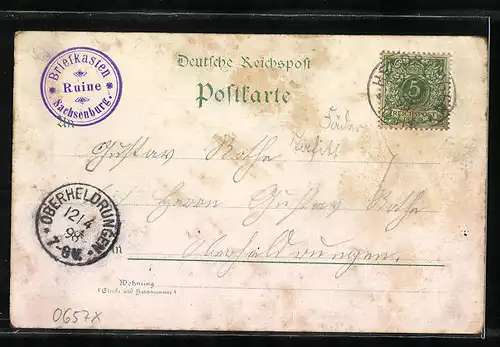 Briefkasten
Ruine
Sachsenburg.
Deutsche Reichspost
Postkarte
5
REICHSPOST
An
Gustav Bothe
Herrn Gustav Bothe
in
Oberheldrungen.
OBERHELDRUNGEN
12/4
98
7-8V.
Wohnung
(Straße und Hausnummer)
0657X